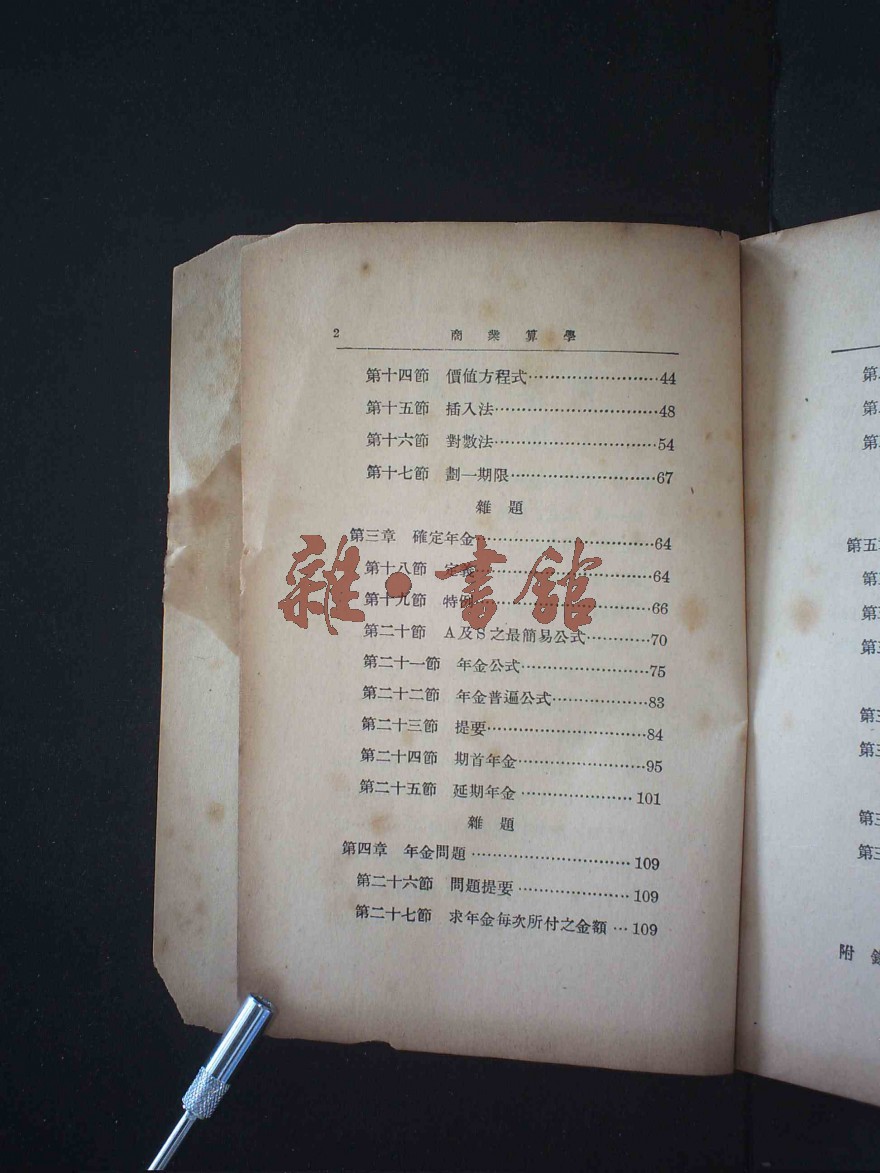 2 商業算學
第十四節 價值方程式························44
第十五節 插入法······························48
第十六節 對數法······························54
第十七節 劃一期限···························67
雜題
第三章 確定年金·································64
第十八節 定義·································64
第十九節 特例·································66
第二十節 A及S之最簡易公式············70
第二十一節 年金公式························75
第二十二節 年金普遍公式··················83
第二十三節 提要······························84
第二十四節 期首年金························95
第二十五節 延期年金·····················101
雜題
第四章 年金問題······························109
第二十六節 問題提要·····················109
第二十七節 求年金每次所付之金額···109
雜·書館
第
第
第
第五
第
第三
第三
第三
第三
第三
第三
附